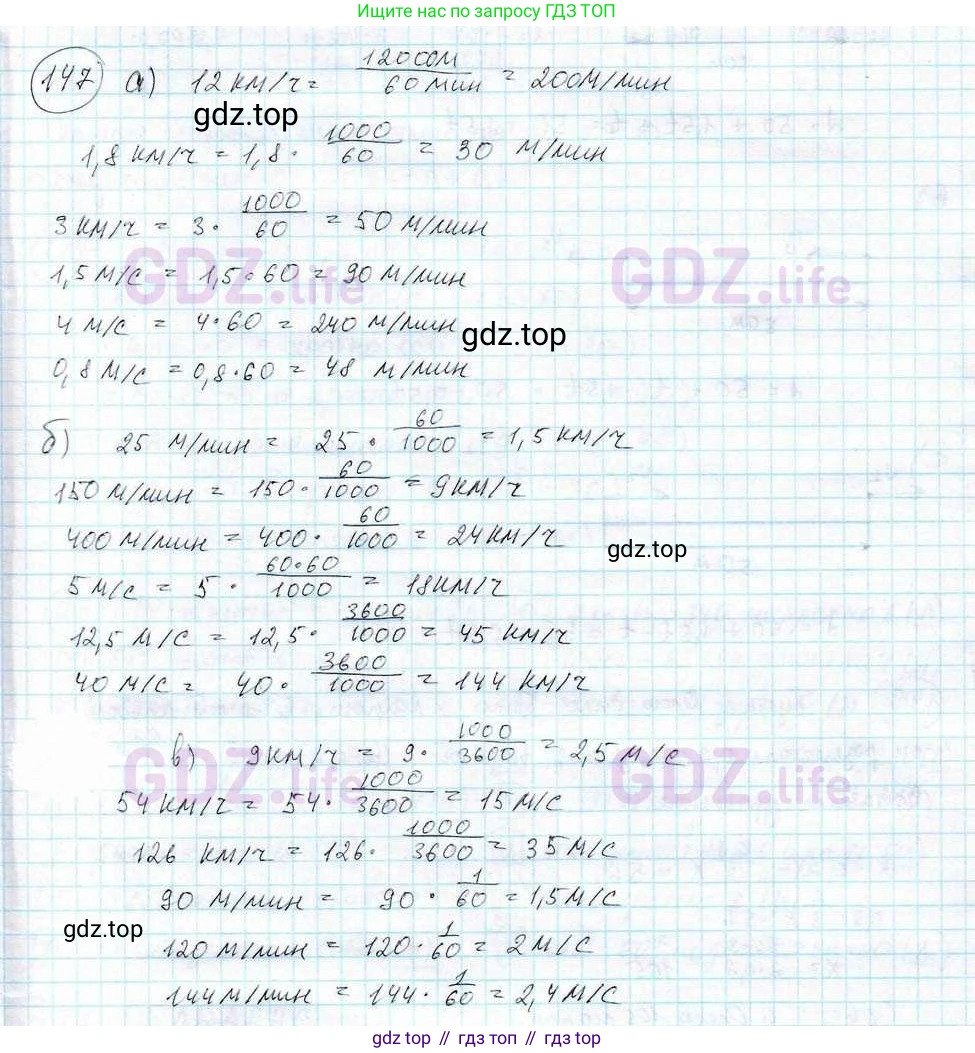 Ищите нас по запросу ГДЗ ТОП
147 а) 12 км/ч = 12000м/60 мин = 200м/мин
gdz.top
1,8 км/ч = 1,8 · 1000/60 = 30 м/мин
3 км/ч = 3 · 1000/60 = 50 м/мин
GDZ.life GDZ.life
1,5 м/с = 1,5 · 60 = 90 м/мин
4 м/с = 4 · 60 = 240 м/мин
gdz.top
0,8 м/с = 0,8 · 60 = 48 м/мин
б) 25 м/мин = 25 · 60/1000 = 1,5 км/ч
150 м/мин = 150 · 60/1000 = 9 км/ч
400 м/мин = 400 · 60/1000 = 24 км/ч
gdz.top
5 м/с = 5 · 60·60/1000 = 18 км/ч
12,5 м/с = 12,5 · 3600/1000 = 45 км/ч
40 м/с = 40 · 3600/1000 = 144 км/ч
в) 9 км/ч = 9 · 1000/3600 = 2,5 м/с
GDZ.life GDZ.life
54 км/ч = 54 · 1000/3600 = 15 м/с
126 км/ч = 126 · 1000/3600 = 35 м/с
90 м/мин = 90 · 1/60 = 1,5 м/с
gdz.top
120 м/мин = 120 · 1/60 = 2 м/с
144 м/мин = 144 · 1/60 = 2,4 м/с
gdz top // гдз топ // gdz.top